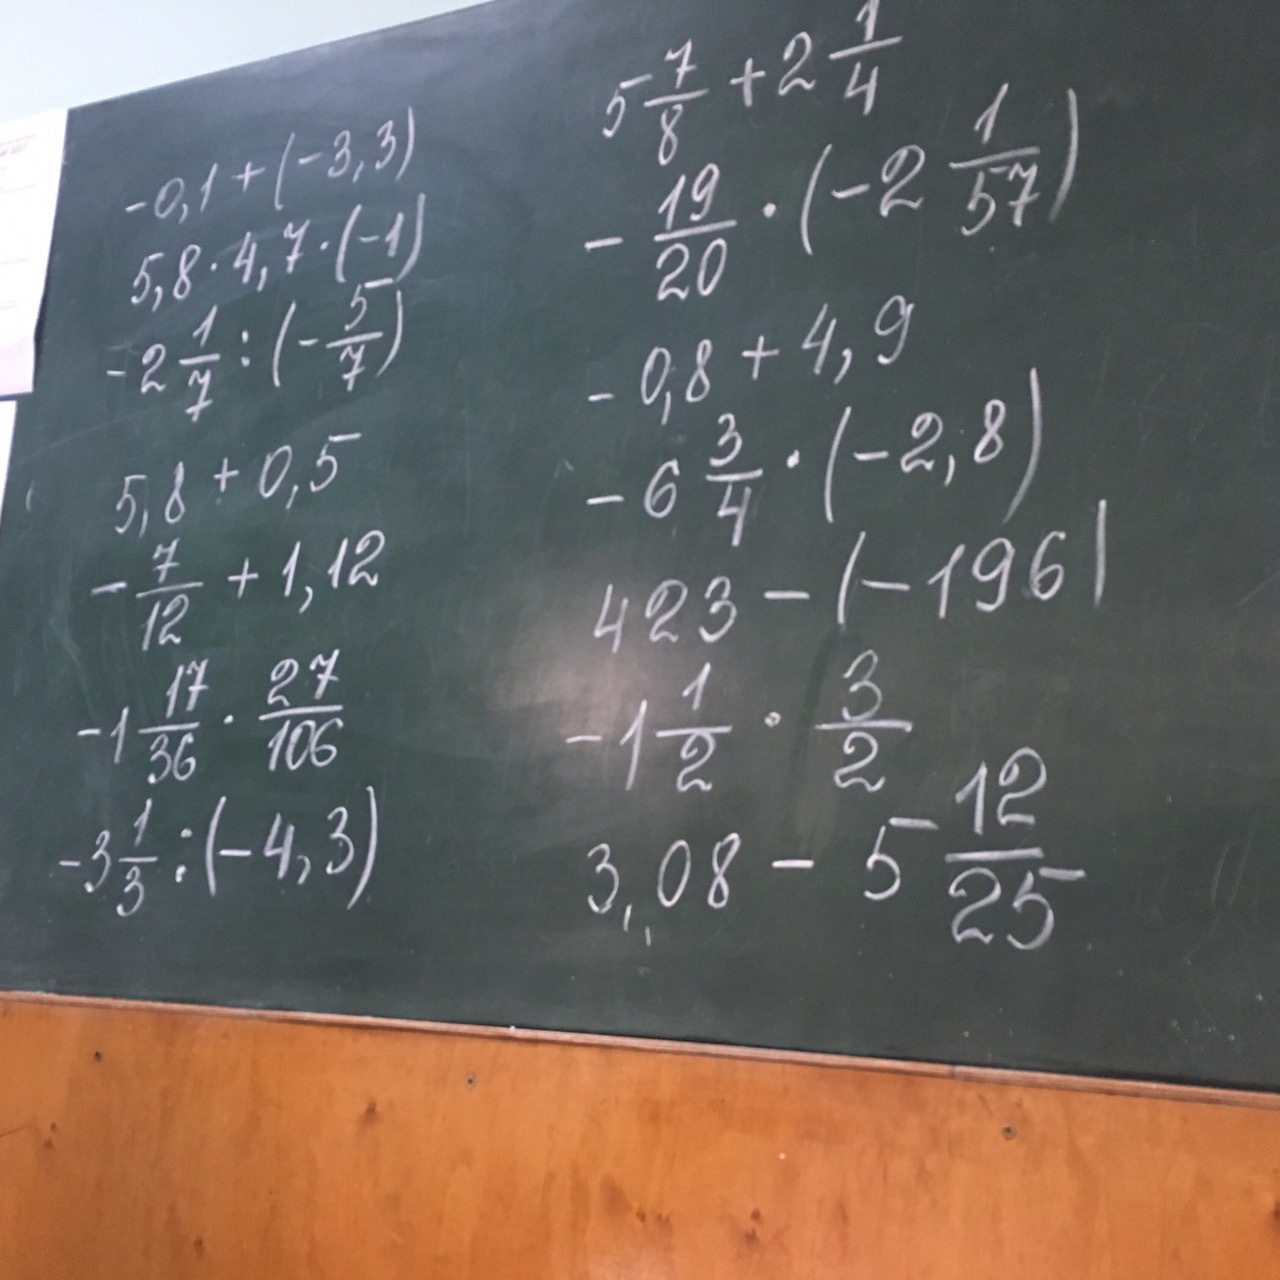 -0,1 + (-3,3)
5,8 · 4,7 · (-1)
-2 1/7 : (-5/7)
5,8 + 0,5
- 7/12 + 1,12
-1 17/36 · 27/106
-3 1/3 : (-4,3)
5 7/8 + 2 1/4
- 19/20 · (-2 1/57)
- 0,8 + 4,9
- 6 3/4 · (-2,8)
423 - (-196)
-1 1/2 · 3/2
3,08 - 5 12/25